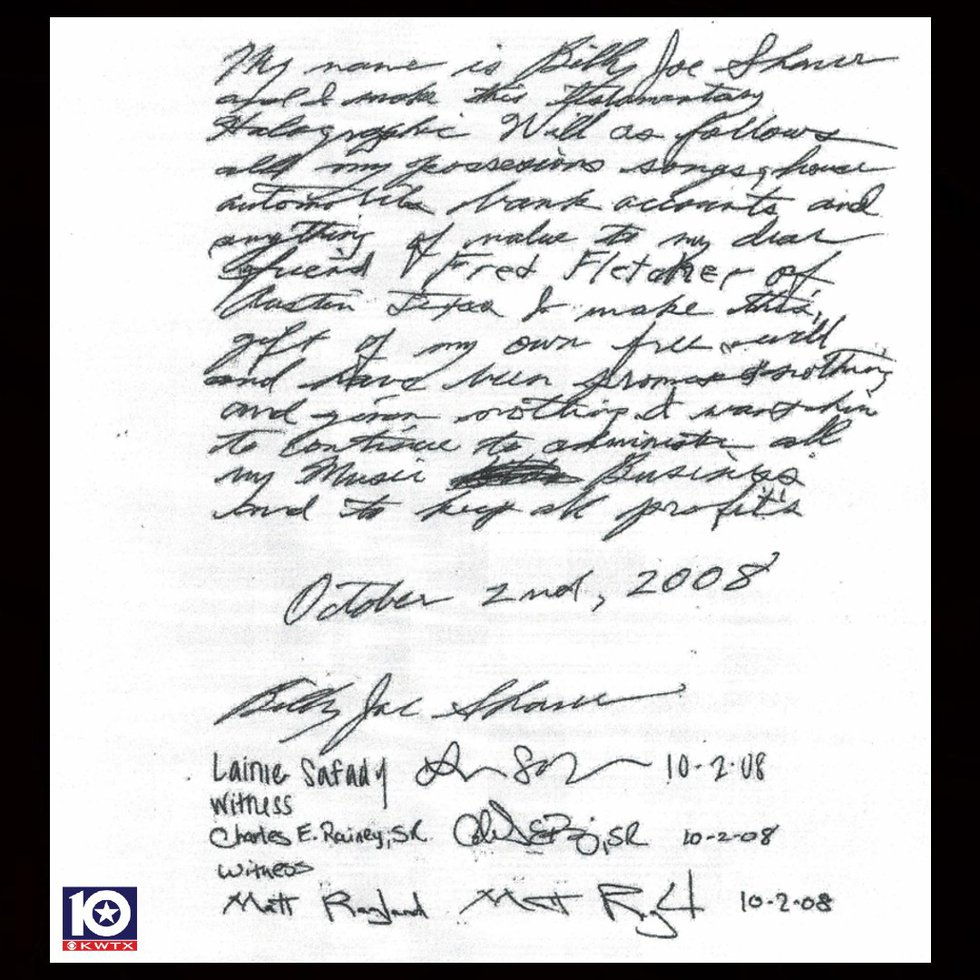 My name is Billy Joe Shaver
and I make this Testamentary
Holographic Will as follows
all my possesions songs, house
automobile bank accounts and
anything of value to my dear
friend Fred Fletcher of
Austin Texas I make this
gift of my own free will
and have been promised nothing
and given nothing I want him
to continue to administer all
my Music Business
and to keep all profits
October 2nd, 2008
Billy Joe Shaver
Lainie Safady 10-2-08
Witness
Charles E. Rainey, SR. SR 10-2-08
Witness
Matt Ragland Matt 10-2-08
10
KWTX